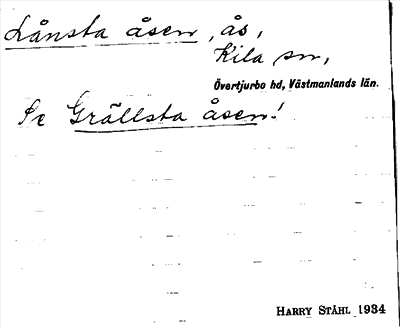 Lånsta åsen, ås,
Kila sn,
Övertjurbo hd, Västmanlands län.
Se Grällsta åsen!
HARRY STÅHL 1934